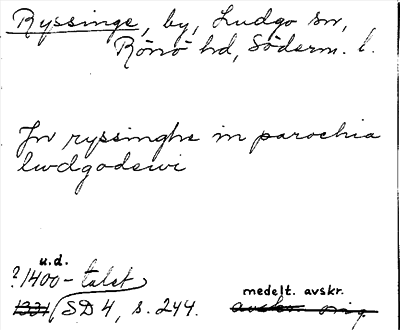 Ryssinge, by, Ludgo sn,
Rönö hd, Söderm. l.
Jn ryssinghe in parochia
lwdgodswi
u.d.
? 1400-talet
1331 (SD 4, s. 244.
medelt. avskr.
avskr. orig